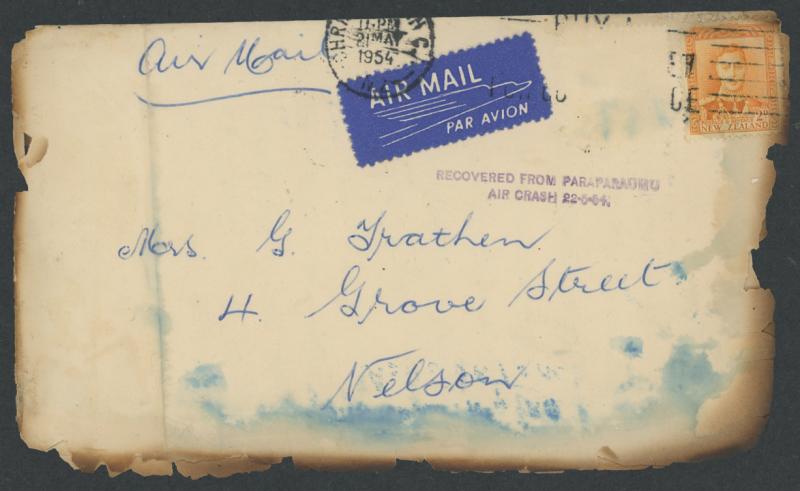 Air Mail
11-PM
21 MAY
1954
AIR MAIL
PAR AVION
2D
NEW ZEALAND
RECOVERED FROM PARAPARAUMU
AIR CRASH 22-5-54.
Mrs. G. Trathen.
4. Grove Street.
Nelson